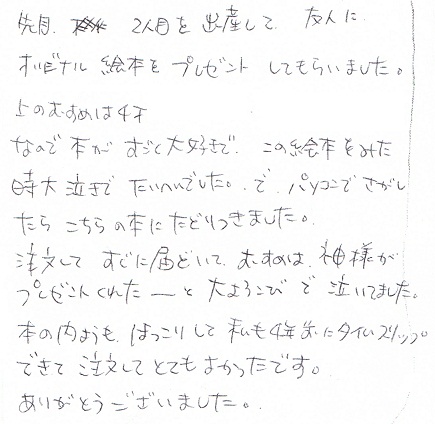 先月、 2人目を出産して、友人に
オリジナル絵本をプレゼントしてもらいました。
上のむすめは4才
なので本がすごく大好きで、この絵本をみた
時大泣きでたいへんでした。で、パソコンでさがし
たらこちらの本にたどりつきました。
注文してすぐに届いて、むすめは、神様が
プレゼントくれたーと大よろこびで泣いてました。
本の内ようも、ほっこりして私も4年前にタイムスリップ
できて注文してとてもよかったです。
ありがとうございました。